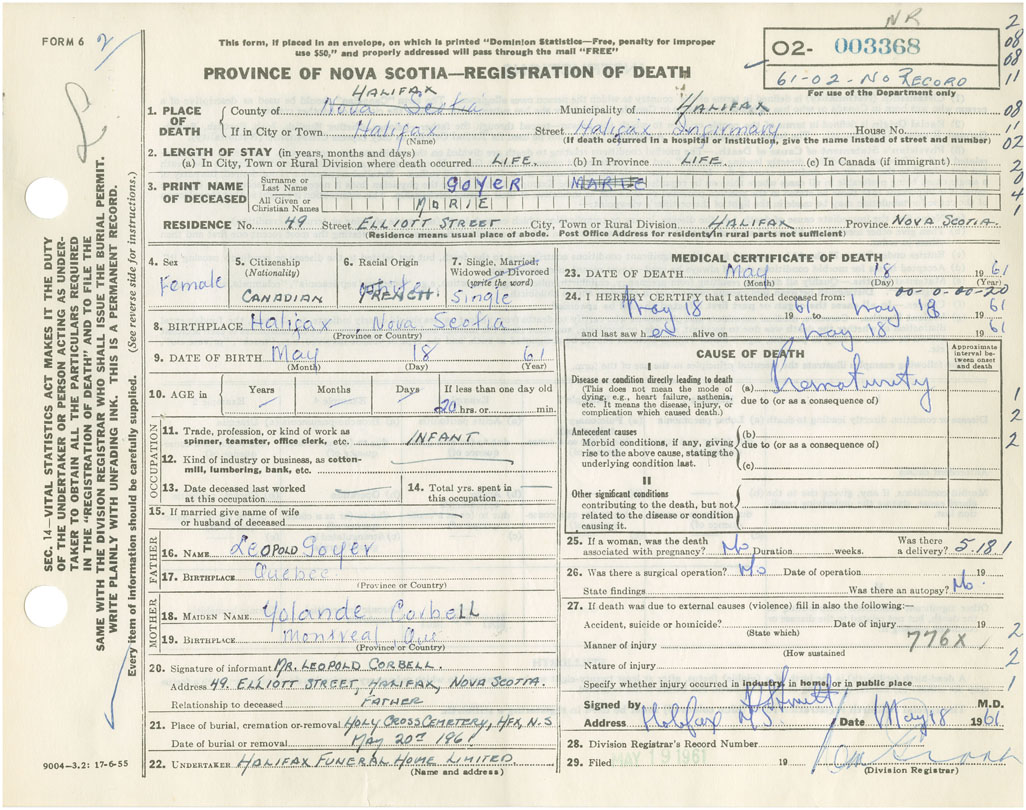 NR
2
FORM 6
2
This form, if placed in an envelope, on which is printed "Dominion Statistics—Free, penalty for improper
use $50," and properly addressed will pass through the mail "FREE"
02- 003368
08
08
PROVINCE OF NOVA SCOTIA—REGISTRATION OF DEATH
61-02-NO RECORD
11
For use of the Department only
HALIFAX
1. PLACE OF DEATH
County of Nova Scotia Municipality of HALIFAX
08
If in City or Town Halifax Street Halifax Infirmary House No.
11
(Name) (If death occurred in a hospital or institution, give the name instead of street and number)
02
2. LENGTH OF STAY (in years, months and days)
(a) In City, Town or Rural Division where death occurred LIFE. (b) In Province LIFE. (c) In Canada (if immigrant)
2
3. PRINT NAME OF DECEASED
Surname or Last Name GOYER MARIE
0
All Given or Christian Names MARIE
4
RESIDENCE No. 49 Street ELLIOTT STREET City, Town or Rural Division HALIFAX Province NOVA SCOTIA
1
(Residence means usual place of abode. Post Office Address for residents in rural parts not sufficient)
4. Sex
Female
5. Citizenship
(Nationality)
CANADIAN
6. Racial Origin
White
FRENCH
7. Single, Married,
Widowed or Divorced
(write the word)
Single
8. BIRTHPLACE Halifax, Nova Scotia
(Province or Country)
9. DATE OF BIRTH May 18 61
(Month) (Day) (Year)
10. AGE in
Years Months Days If less than one day old
20 hrs. or min.
OCCUPATION
11. Trade, profession, or kind of work as
spinner, teamster, office clerk, etc. INFANT
12. Kind of industry or business, as cotton-
mill, lumbering, bank, etc.
13. Date deceased last worked
at this occupation
14. Total yrs. spent in
this occupation
15. If married give name of wife
or husband of deceased
FATHER
16. NAME LEOPOLD Goyer
17. BIRTHPLACE Quebec
(Province or Country)
MOTHER
18. MAIDEN NAME Yolande Corbell
19. BIRTHPLACE Montreal, Que
(Province or Country)
20. Signature of informant MR. LEOPOLD CORBELL.
Address 49. ELLIOTT STREET, HALIFAX, NOVA SCOTIA.
Relationship to deceased FATHER
21. Place of burial, cremation or removal HOLY CROSS CEMETERY, HFX, N.S
Date of burial or removal MAY 20TH 1961
22. UNDERTAKER HALIFAX FUNERAL HOME LIMITED
(Name and address)
MEDICAL CERTIFICATE OF DEATH
23. DATE OF DEATH May 18 1961
(Month) (Day) (Year)
00-0-00-20
24. I HEREBY CERTIFY that I attended deceased from:
May 18 1961 to May 18 1961
and last saw her alive on May 18 1961
CAUSE OF DEATH
Approximate
interval be-
tween onset
and death
I
Disease or condition directly leading to death
(This does not mean the mode of
dying, e.g., heart failure, asthenia,
etc. It means the disease, injury, or
complication which caused death.)
(a) Prematurity
due to (or as a consequence of)
1
2
Antecedent causes
Morbid conditions, if any, giving
rise to the above cause, stating the
underlying condition last.
(b)
due to (or as a consequence of)
(c)
2
II
Other significant conditions
contributing to the death, but not
related to the disease or condition
causing it.
25. If a woman, was the death
associated with pregnancy? No Duration weeks. Was there
a delivery? 5.18.1
26. Was there a surgical operation? No Date of operation 19
State findings Was there an autopsy? No
27. If death was due to external causes (violence) fill in also the following:—
Accident, suicide or homicide? Date of injury 19
2
(State which)
776X
Manner of injury
1
(How sustained
Nature of injury
2
Specify whether injury occurred in industry, in home, or in public place
1
Signed by M.D.
Address Halifax N.S. Date May 18 1961
28. Division Registrar's Record Number
29. Filed MAY 19 1961 19
(Division Registrar)
SEC. 14—VITAL STATISTICS ACT MAKES IT THE DUTY
OF THE UNDERTAKER OR PERSON ACTING AS UNDER-
TAKER TO OBTAIN ALL THE PARTICULARS REQUIRED
IN THE "REGISTRATION OF DEATH" AND TO FILE THE
SAME WITH THE DIVISION REGISTRAR WHO SHALL ISSUE THE BURIAL PERMIT.
WRITE PLAINLY WITH UNFADING INK. THIS IS A PERMANENT RECORD.
Every item of information should be carefully supplied. (See reverse side for instructions.)
9004—3.2: 17-6-55